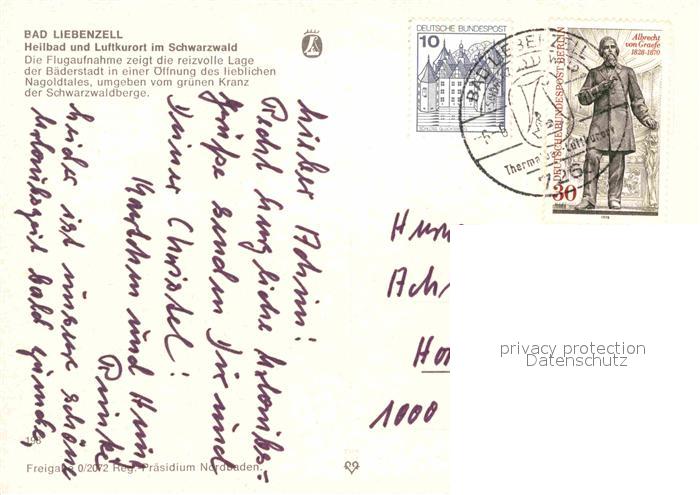 BAD LIEBENZELL
Heilbad und Luftkurort im Schwarzwald
Die Flugaufnahme zeigt die reizvolle Lage
der Bäderstadt in einer Öffnung des lieblichen
Nagoldtales, umgeben vom grünen Kranz
der Schwarzwaldberge.
Lieber Achim!
Recht herzliche Urlaubs=
grüße senden Dir und
Deiner Christel!
und
leider ist unsere schöne
Urlaubszeit bald zu ende
198
Freigabe 0/2072 Reg. Präsidium Nordbaden.
DEUTSCHE BUNDESPOST
10
SCHLOSS GLÜCKSBURG
BAD LIEBENZELL
Thermal
Luftkurort
DEUTSCHE BUNDESPOST BERLIN
Albrecht
von Graefe
1828-1870
30
1978
1000
privacy protection
Datenschutz